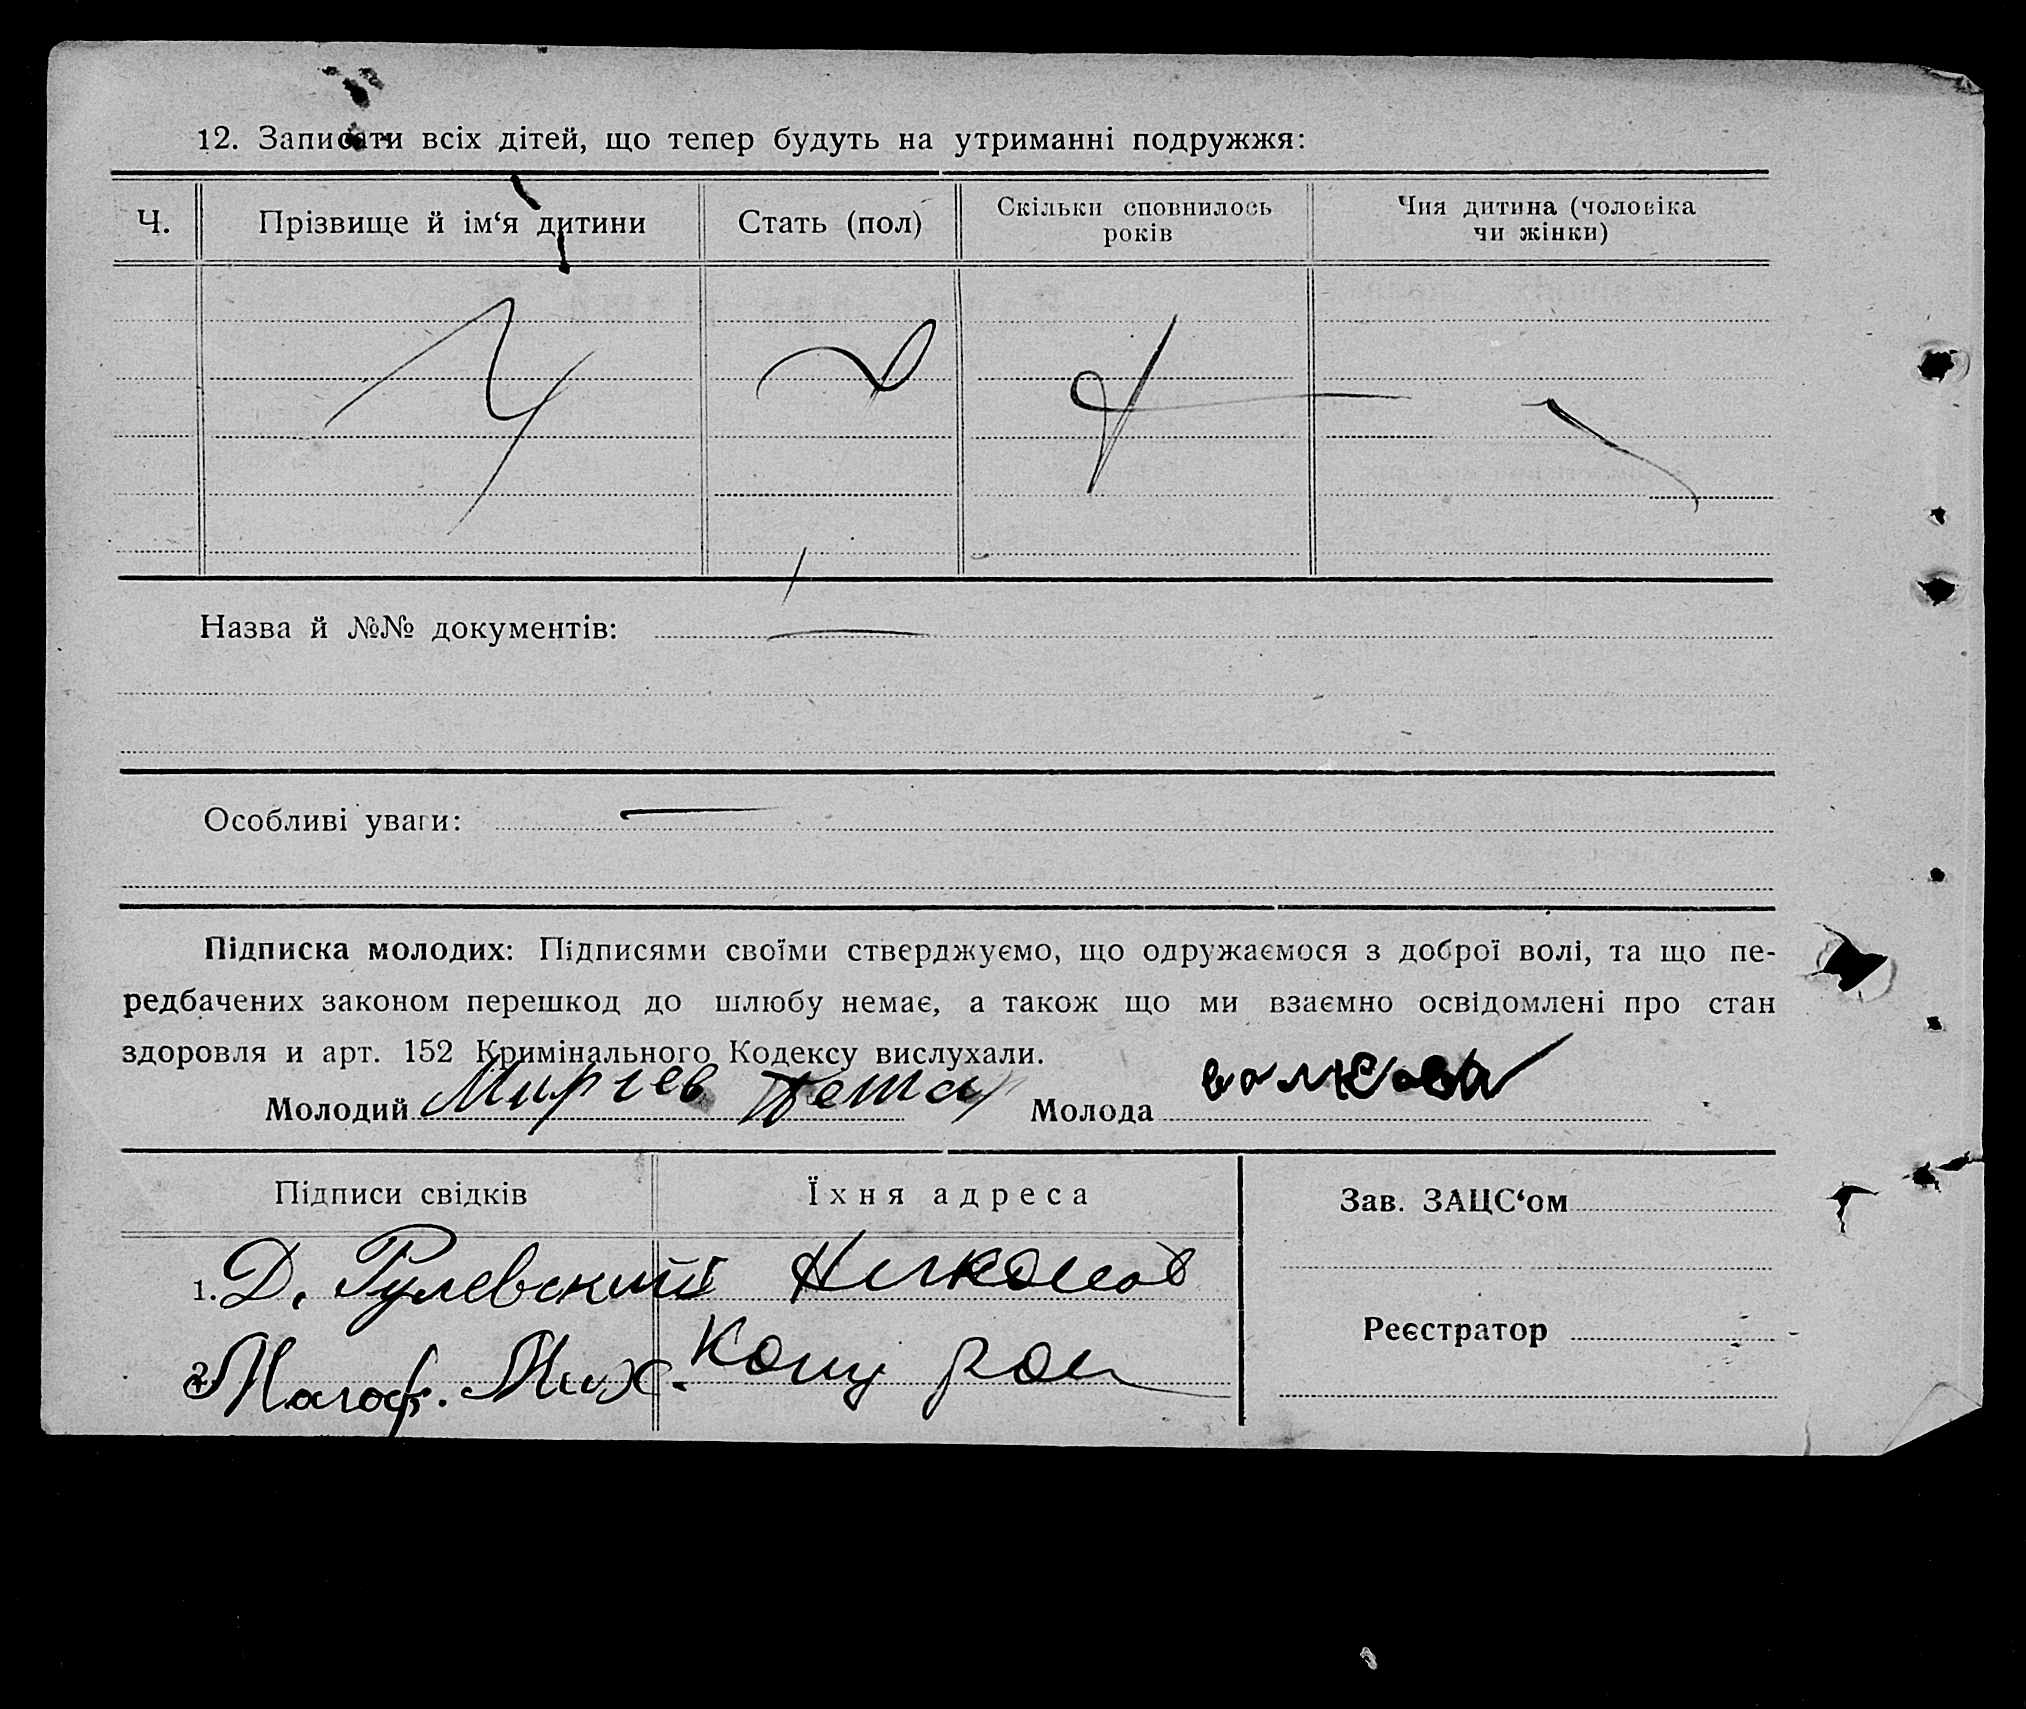 12. Записати всіх дітей, що тепер будуть на утриманні подружжя:
Ч.
Прізвище й ім‘я дитини
Стать (пол)
Скільки сповнилось
років
Чия дитина (чоловіка
чи жінки)
Назва й №№ документів:
Особливі уваги:
Підписка молодих: Підписями своїми стверджуємо, що одружаємося з доброї волі, та що пе-
редбачених законом перешкод до шлюбу немає, а також що ми взаємно освідомлені про стан
здоровля и арт. 152 Кримінального Кодексу вислухали.
Молодий
Молода
Підписи свідків
Їхня адреса
Зав. ЗАЦС‘ом
1. Д. Рулевский
2. Мих.
Реєстратор